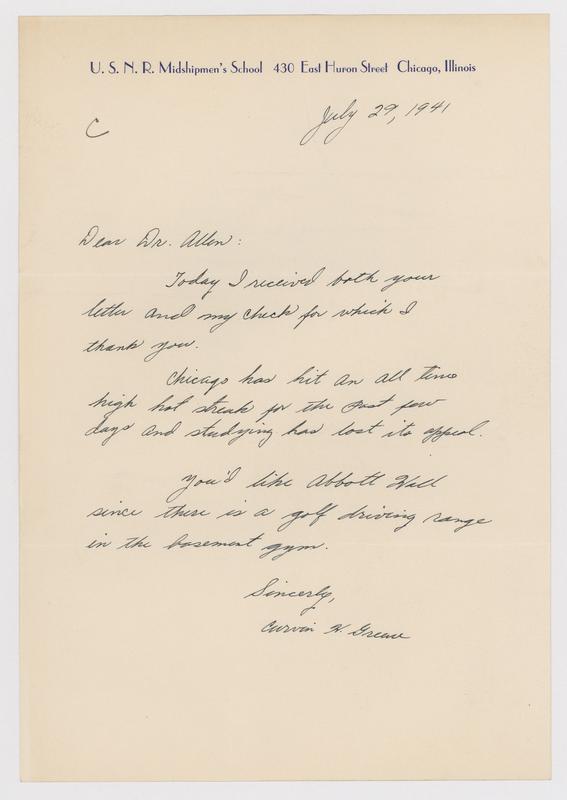 U. S. N. R. Midshipmen's School 430 East Huron Street Chicago, Illinois
July 29, 1941
C
Dear Dr. Allen:
Today I received both your
letter and my check for which I
thank you.
Chicago has hit an all time
high hot streak for the past few
days and studying has lost its appeal.
You'd like Abbott Hall
since there is a golf driving range
in the basement gym.
Sincerely,
Curvin H. Greene